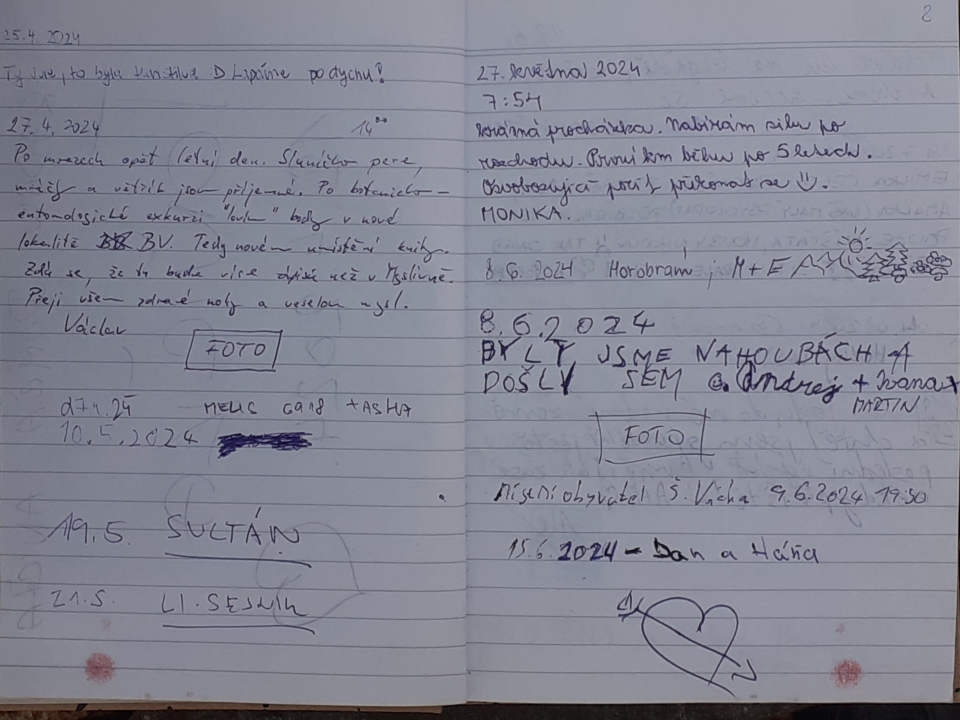 25.4. 2024
Ty jsme, to byla D Lapáme po dychu!
27.4.2024 14⁰⁰
Po mrazech opět letní den. Sluníčko pere,
a větřík jsou příjemné. Po botanicko-
entomologické exkurzi "lovím" body v nové
lokalitě BV. Tedy novém umístění knihy.
Zdá se, že tu bude více zápisů než v Myslivně.
Přeji všem zdravé nohy a veselou mysl.
Václav
FOTO
27.4.24 - MELIS GANG + ASHA
10.5.2024
19.5. SULTÁN
21.5. LI. SESNIK
2
27. května 2024
7:54
Krásná procházka. Nabírám sílu po
rozchodu. První km běhu po 5 letech.
Osvobozující pocit překonat se
MONIKA.
8.6. 2024 Horobraní M+E
8.6.2024
BYLY JSME NAHOUBÁCH A
DOŠLY SEM Andrej + Ivana +
MARTIN
FOTO
Místní obyvatel Š. Vácha 9.6.2024 19:30
15.6.2024 - Dan a Háňa